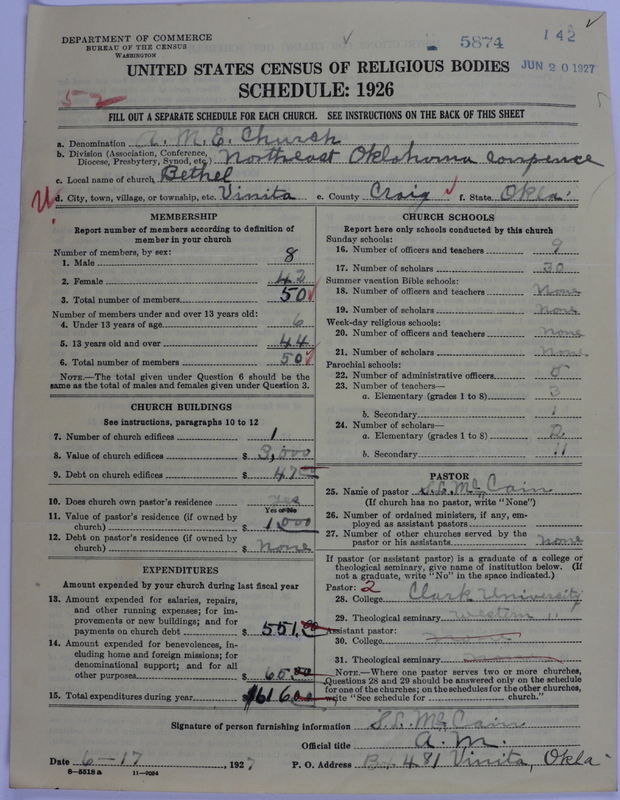 DEPARTMENT OF COMMERCE
BUREAU OF THE CENSUS
WASHINGTON
5874
142
JUN 20 1927
UNITED STATES CENSUS OF RELIGIOUS BODIES
SCHEDULE: 1926
52
FILL OUT A SEPARATE SCHEDULE FOR EACH CHURCH. SEE INSTRUCTIONS ON THE BACK OF THIS SHEET
a. Denomination A. M. E. Church
b. Division (Association, Conference, Diocese, Presbytery, Synod, etc.) Northeast Oklahoma
c. Local name of church Bethel
d. City, town, village, or township, etc. Vinita e. County Craig f. State Okla.
MEMBERSHIP
Report number of members according to definition of member in your church
Number of members, by sex:
1. Male 8
2. Female 42
3. Total number of members 50
Number of members under and over 13 years old:
4. Under 13 years of age 6
5. 13 years old and over 44
6. Total number of members 50
NOTE.—The total given under Question 6 should be the same as the total of males and females given under Question 3.
CHURCH BUILDINGS
See instructions, paragraphs 10 to 12
7. Number of church edifices 1
8. Value of church edifices $ 3,000
9. Debt on church edifices $ 47
10. Does church own pastor's residence yes
Yes or No
11. Value of pastor's residence (if owned by church) $ 1,000
12. Debt on pastor's residence (if owned by church) $ None
EXPENDITURES
Amount expended by your church during last fiscal year
13. Amount expended for salaries, repairs, and other running expenses; for improvements or new buildings; and for payments on church debt $ 551.00
14. Amount expended for benevolences, including home and foreign missions; for denominational support; and for all other purposes $ 65.00
15. Total expenditures during year $ 616.00
CHURCH SCHOOLS
Report here only schools conducted by this church
Sunday schools:
16. Number of officers and teachers 9
17. Number of scholars 30
Summer vacation Bible schools:
18. Number of officers and teachers None
19. Number of scholars None
Week-day religious schools:
20. Number of officers and teachers None
21. Number of scholars None
Parochial schools:
22. Number of administrative officers 5
23. Number of teachers—
a. Elementary (grades 1 to 8) 3
b. Secondary 1
24. Number of scholars—
a. Elementary (grades 1 to 8)
b. Secondary 11
PASTOR
25. Name of pastor S. L. McCain
(If church has no pastor, write "None")
26. Number of ordained ministers, if any, employed as assistant pastors
27. Number of other churches served by the pastor or his assistants None
If pastor (or assistant pastor) is a graduate of a college or theological seminary, give name of institution below. (If not a graduate, write "No" in the space indicated.)
Pastor: 2
28. College Clark University
29. Theological seminary Western "
Assistant pastor:
30. College
31. Theological seminary
NOTE.—Where one pastor serves two or more churches, Questions 28 and 29 should be answered only on the schedule for one of the churches; on the schedules for the other churches, write "See schedule for church."
Signature of person furnishing information S. L. McCain
Official title A. M.
Date 6-17, 1927 P. O. Address Bx 481 Vinita, Okla
8-5518 a 11-9084